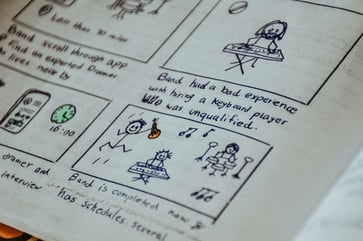 Less than 30
Band scroll through app
find an experted Dramer
lives near by
Band had a bad experience
with hiring a keyboard player
who was unqualified.
16:00
dramer and
interview
Band is completed now &
has schedules several